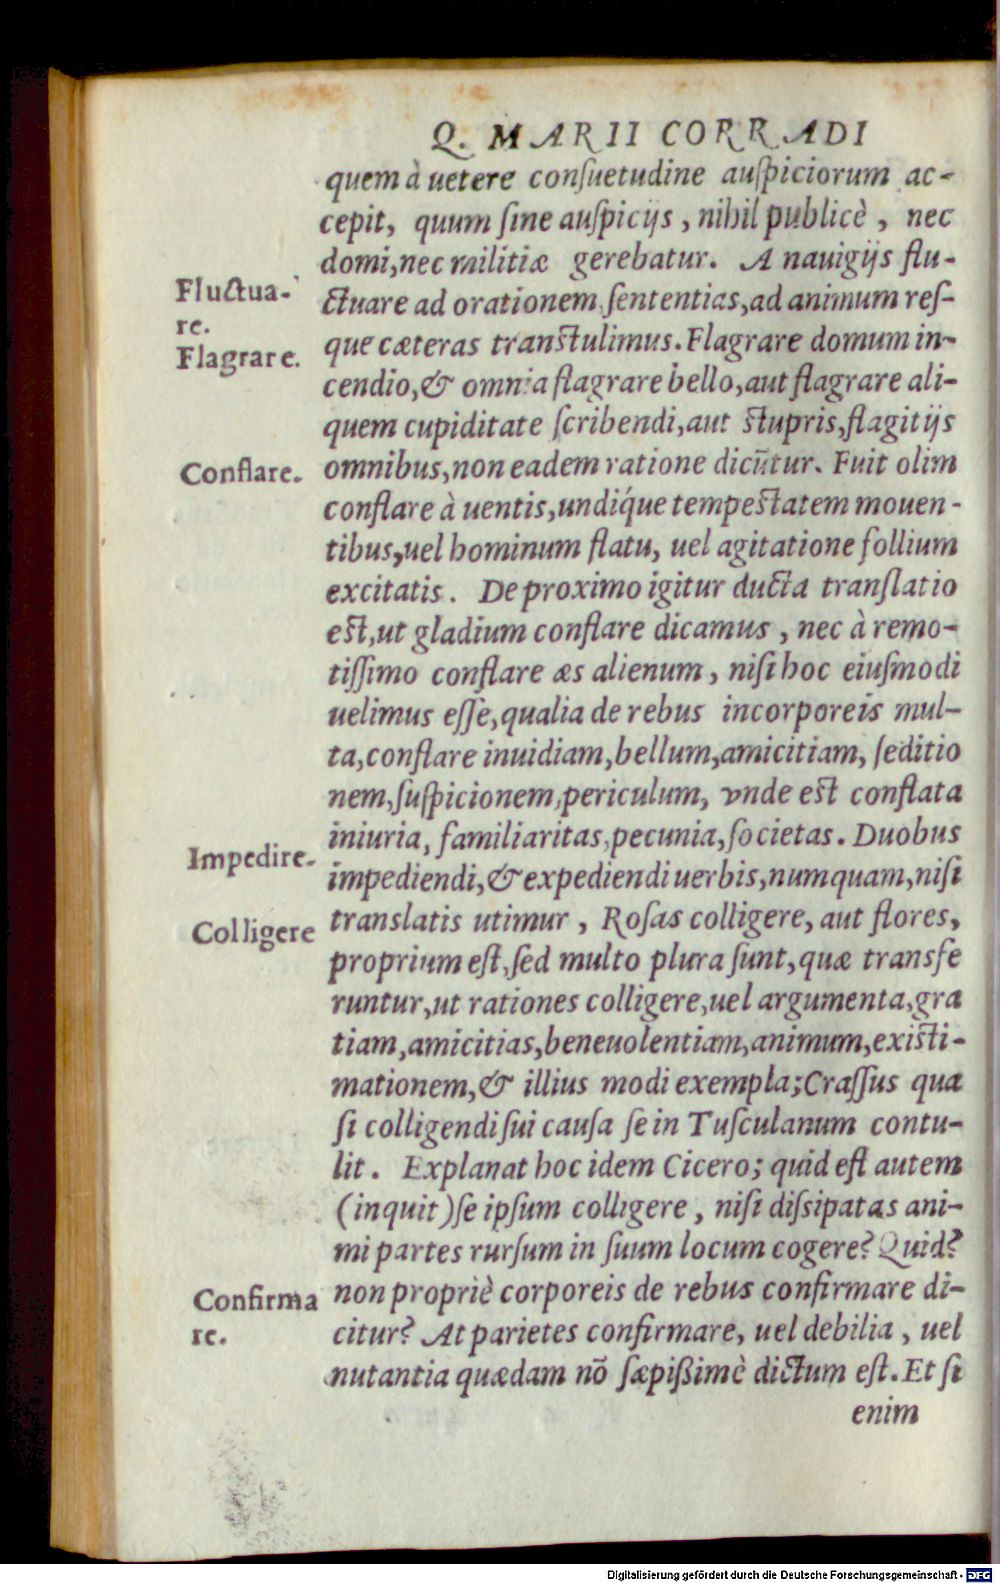 Q. MARII CORRADI
quem à uetere consuetudine auspiciorum ac-
cepit, quum sine auspicijs, nihil publicè, nec
domi, nec militiæ gerebatur. A nauigijs flu-
Fluctua-
re.
ctuare ad orationem, sententias, ad animum res-
que cæteras transtulimus. Flagrare domum in-
Flagrare.
cendio, & omnia flagrare bello, aut flagrare ali-
quem cupiditate scribendi, aut stupris, flagitijs
omnibus, non eadem ratione dicũtur. Fuit olim
Conflare.
conflare à uentis, undiq́ue tempestatem mouen-
tibus, uel hominum flatu, uel agitatione follium
excitatis. De proximo igitur ducta translatio
est, ut gladium conflare dicamus, nec à remo-
tissimo conflare æs alienum, nisi hoc eiusmodi
uelimus esse, qualia de rebus incorporeis mul-
ta, conflare inuidiam, bellum, amicitiam, seditio
nem, suspicionem, periculum, vnde est conflata
iniuria, familiaritas, pecunia, societas. Duobus
Impedire.
impediendi, & expediendi uerbis, numquam, nisi
translatis utimur, Rosas colligere, aut flores,
Colligere
proprium est, sed multo plura sunt, quæ transfe
runtur, ut rationes colligere, uel argumenta, gra
tiam, amicitias, beneuolentiam, animum, existi-
mationem, & illius modi exempla; Crassus qua
si colligendi sui causa se in Tusculanum contu-
lit. Explanat hoc idem Cicero; quid est autem
(inquit) se ipsum colligere, nisi dissipatas ani-
mi partes rursum in suum locum cogere? Quid?
non propriè corporeis de rebus confirmare di-
Confirma
re.
citur? At parietes confirmare, uel debilia, uel
nutantia quædam nõ sæpißimè dictum est. Et si
enim
Digitalisierung gefördert durch die Deutsche Forschungsgemeinschaft - DFG